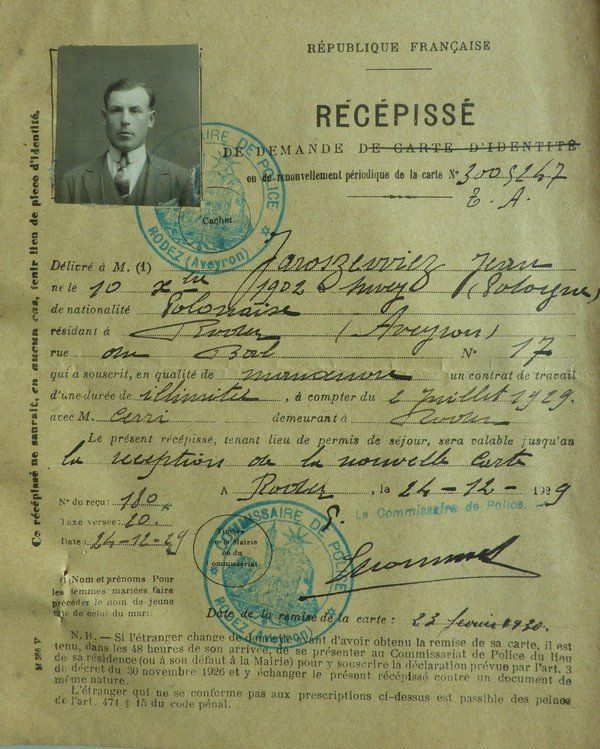 RÉPUBLIQUE FRANÇAISE
RÉCÉPISSÉ
DE DEMANDE DE CARTE D'IDENTITÉ
ou de renouvellement périodique de la carte N° 3005247
T. A.
COMMISSAIRE DE POLICE
RODEZ (Aveyron)
Cachet.
Délivré à M. (1) Jaroszewiez Jean
né le 10 Xbre 1902 (Pologne)
de nationalité Polonaise
résidant à Rodez (Aveyron)
rue du Bal N° 17
qui a souscrit, en qualité de manœuvre un contrat de travail
d'une durée de illimitée, à compter du 2 Juillet 1929.
avec M. Cerri demeurant à Rodez
Le présent récépissé, tenant lieu de permis de séjour, sera valable jusqu'au
la reception de la nouvelle carte
A Rodez, le 24-12-1929
N° du reçu: 180
Taxe versée: 20.
Date: 24-12-29
Timbre de la Mairie ou du Commissariat
COMMISSAIRE DE POLICE
Le Commissaire de Police,
(1) Nom et prénoms Pour
les femmes mariées faire
précéder le nom de jeune
fille de celui du mari
Date de la remise de la carte: 22 février 1930.
N. B. — Si l'étranger change de domicile avant d'avoir obtenu la remise de sa carte, il est
tenu, dans les 48 heures de son arrivée, de se présenter au Commissariat de Police du lieu
de sa résidence (ou à son défaut à la Mairie) pour y souscrire la déclaration prévue par l'art. 3
du décret du 30 novembre 1926 et y échanger le présent récépissé contre un document de
même nature.
L'étranger qui ne se conforme pas aux prescriptions ci-dessus est passible des peines
de l'art. 471 § 15 du code pénal.
Ce récépissé ne saurait, en aucun cas, tenir lieu de pièce d'identité.